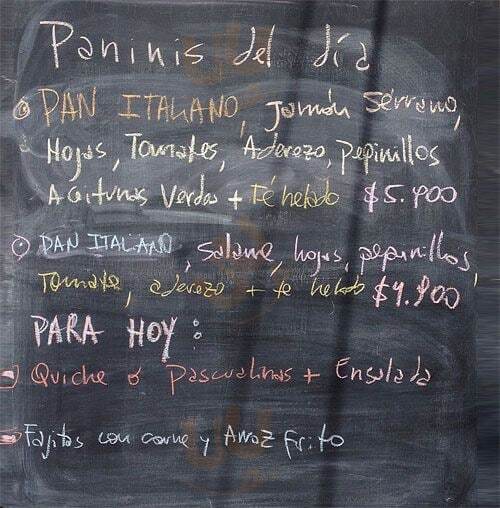 Paninis del día
PAN ITALIANO, Jamón Serrano,
Hojas, Tomates, Aderezo, pepinillos
Aceitunas Verdes + Té helado $5.900
PAN ITALIANO, salame, hojas, pepinillos,
Tomate, aderezo + te helado $4.900
PARA HOY:
Quiche ó Pascualinas + Ensalada
Fajitas con carne y Arroz frito